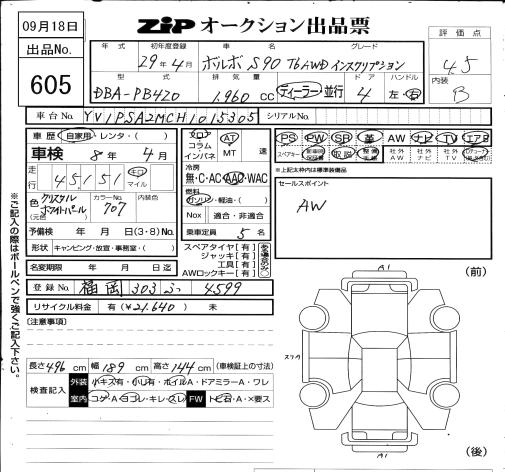 09月18日
ZIP オークション出品票
出品No.
605
年式 初年度登録 車名 グレード
29年4月 ボルボ S90 T6 AWD インスクリプション
型式 排気量 ドア ハンドル
DBA-PB420 1,960 cc ディーラー・並行 4 左・右
評価点
4.5
内装
B
車台No. YV1PSA2MCH1015305 シリアルNo.
車歴 自家用・レンタ・( )
車検 8年 4月
走行 45151 キロ マイル
色(元色) クリスタルホワイトパール カラーNo. 707 内装色
予備検 年 月 日(3・8)No.
形状 キャンピング・放宣・事務室・( )
名変期限 年 月 日迄
フロア コラム インパネ AT MT 速
冷房
無・C・AC・AAC・WAC
燃料
ガソリン・軽油・( )
Nox 適合・非適合
乗車定員 5 名
スペアタイヤ[有]
ジャッキ[有]
工具[有]
AWロックキー[有]
PS PW SR 革 AW ナビ TV エアB
スペアキー 新車時保証書 取説 整備手帳 社外AW 社外ナビ 社外TV
※上記太枠内が標準装備品
セールスポイント
AW
登録No. 福岡 303 ふ 4599
リサイクル料金 有(¥21,640) 未
(注意事項)
(前)
A1
スリキズ
A1
(後)
長さ 496 cm 幅 189 cm 高さ 144 cm (車検証上の寸法)
検査記入 外装 小キズ有・小凹有・ホイルA・ドアミラーA・ワレ
室内 コゲA・ヨゴレ・キレ・スレ FW トビ石・A・×要ス
※ご記入の際はボールペンで強くご記入下さい。